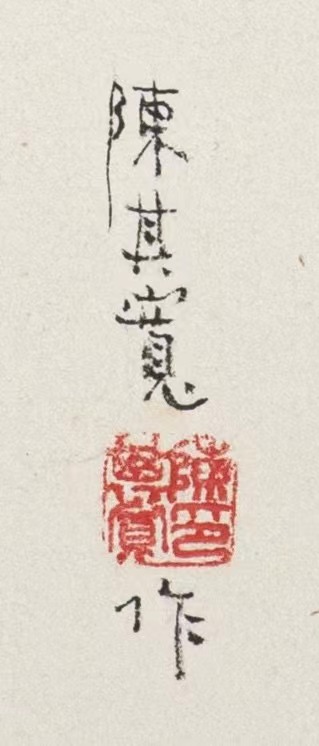 陳其寬
作